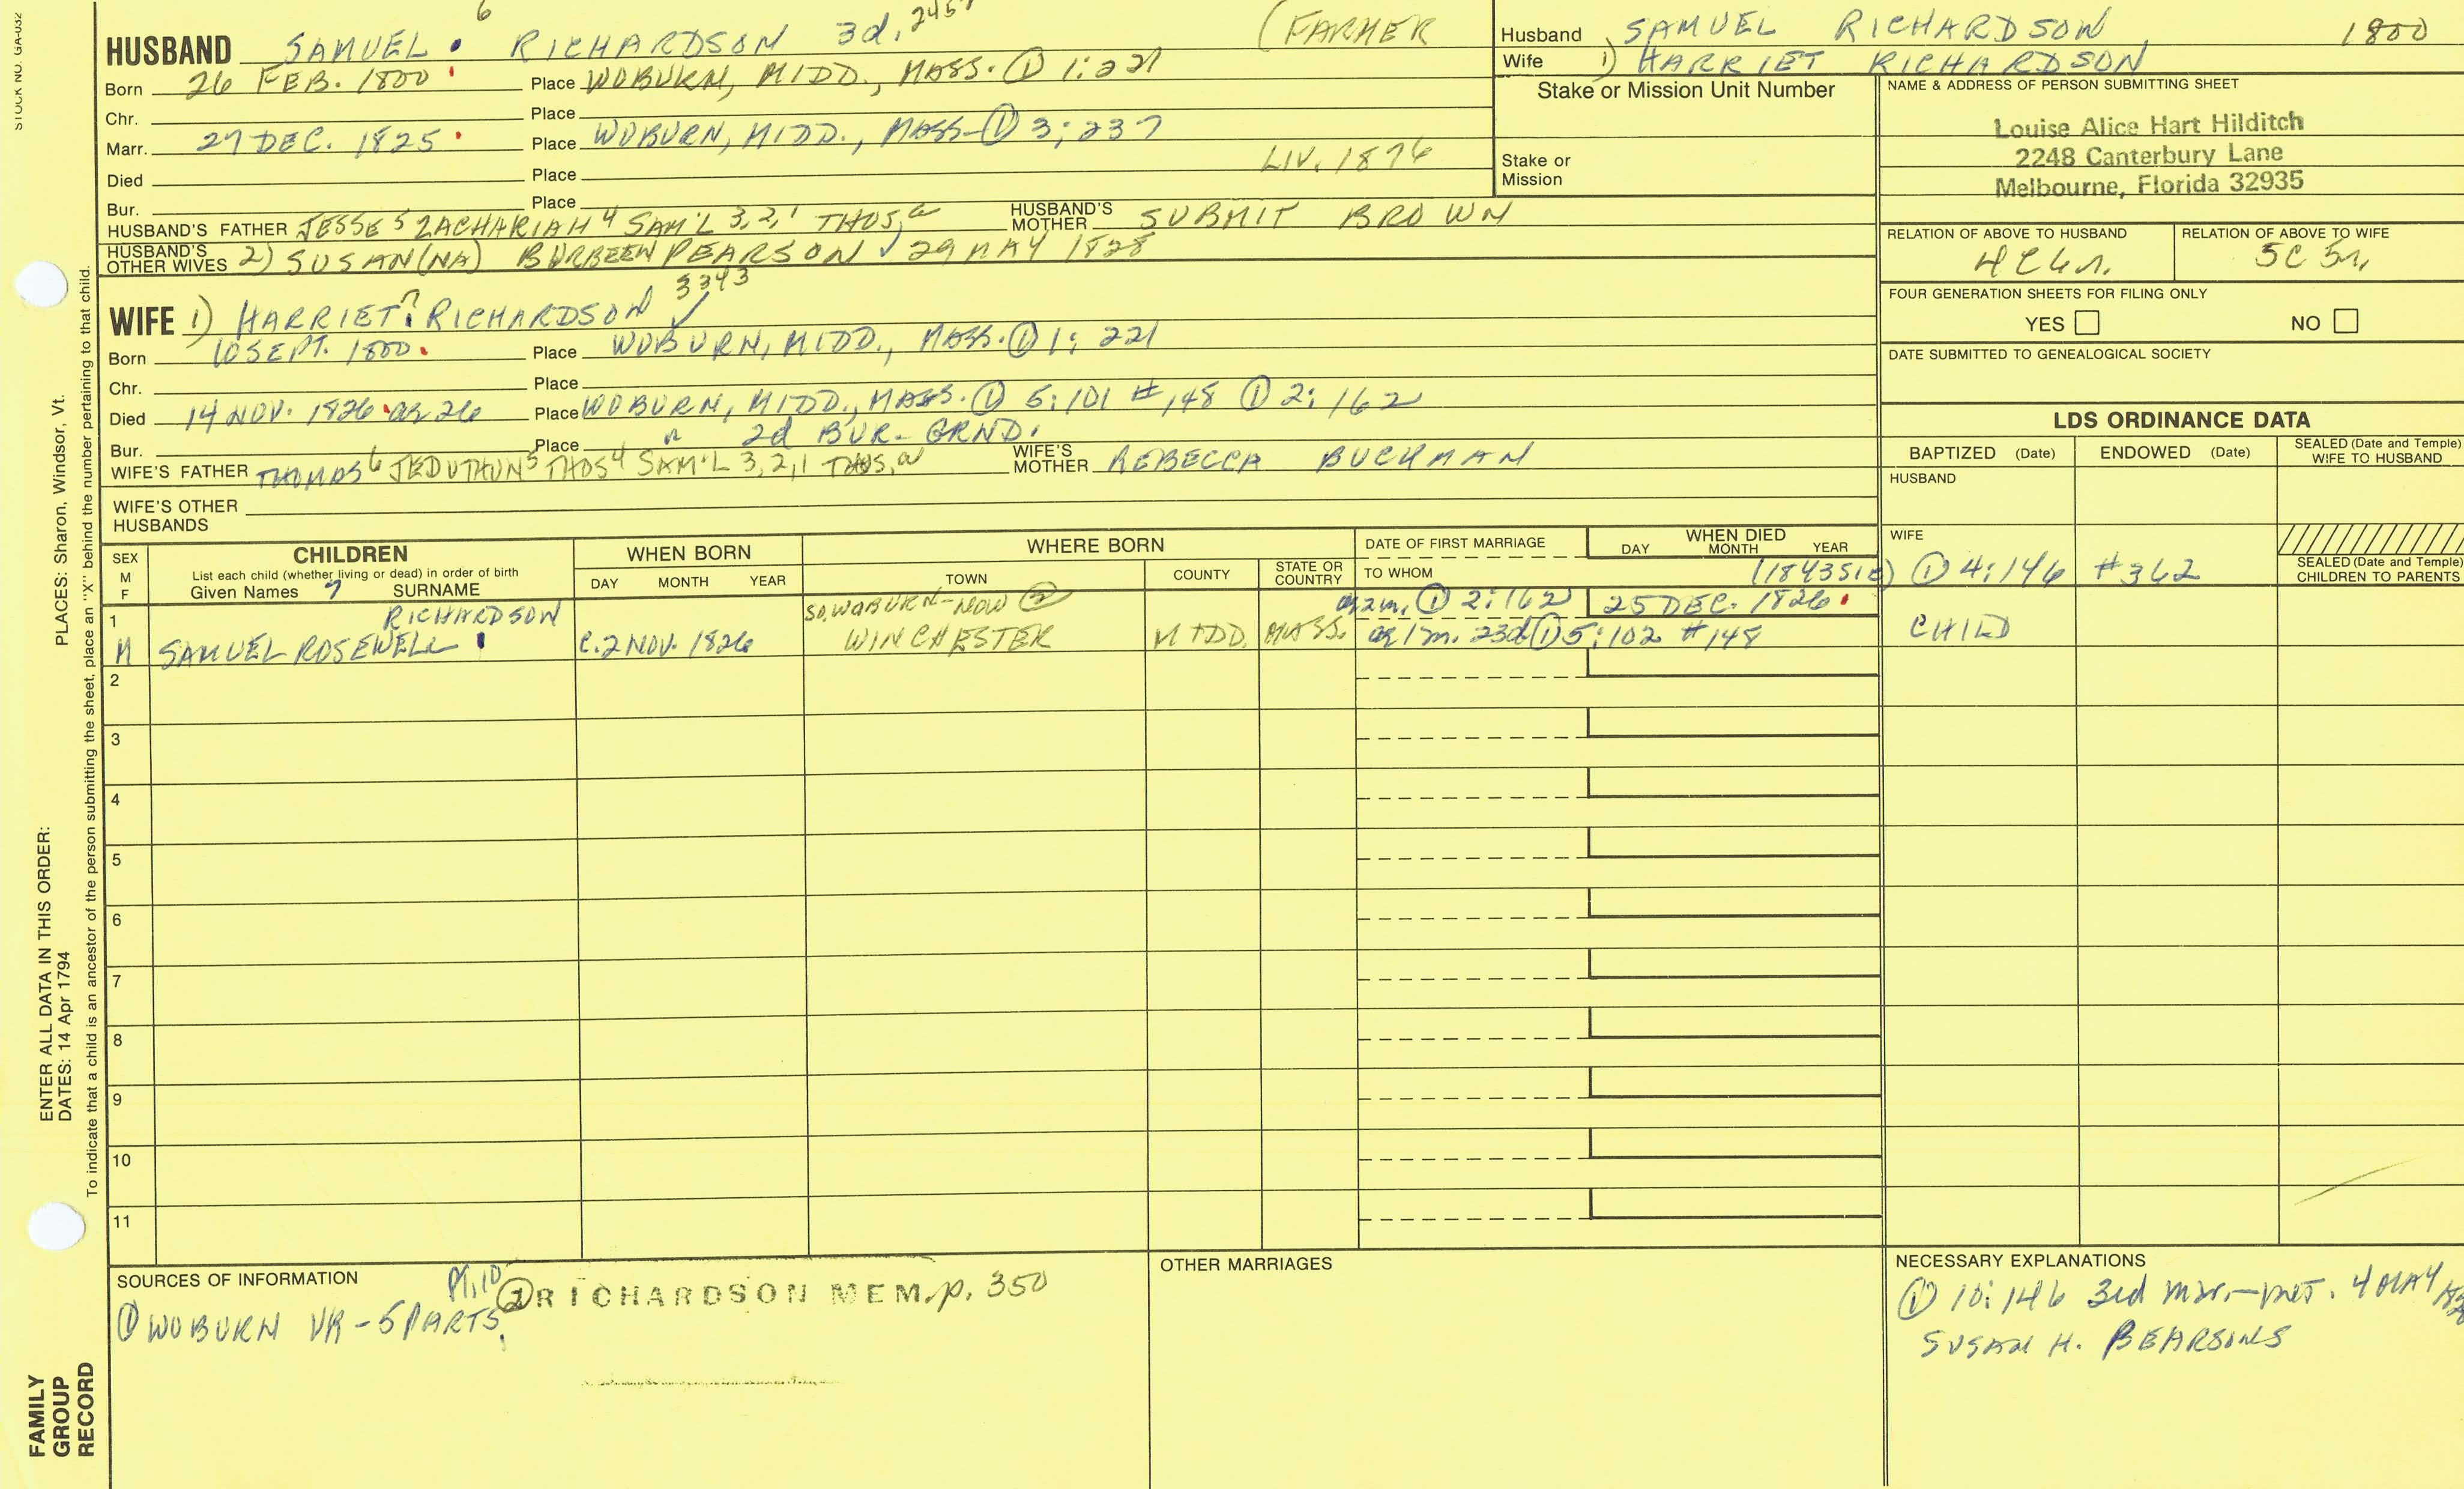 STOCK NO. GA-032
6
HUSBAND SAMUEL RICHARDSON 3d. 245 (FARMER
Born 26 FEB. 1800 Place WOBURN, MIDD., MASS. ① 1:221
Chr. Place
Marr. 27 DEC. 1825 Place WOBURN, MIDD., MASS ① 3:237
Died Place LIV. 1876
Bur. Place
HUSBAND'S FATHER JESSE 5 ZACHARIAH 4 SAM'L 3,2,1 THOS, a HUSBAND'S MOTHER SUBMIT BROWN
HUSBAND'S OTHER WIVES 2) SUSAN(NA) BURBEEN PEARSON ✓ 29 MAY 1828
3343
WIFE 1) HARRIET 7 RICHARDSON ✓
Born 10 SEPT. 1800. Place WOBURN, MIDD., MASS. ① 1:221
Chr. Place
Died 14 NOV. 1826 ag 26 Place WOBURN, MIDD., MASS. ① 5:101 #148 ① 2:162
Bur. Place " 2d BUR. GRND.
WIFE'S FATHER THOMAS 6 JEDUTHUN 5 THOS 4 SAM'L 3,2,1 THOS, a WIFE'S MOTHER REBECCA BUCKMAN
WIFE'S OTHER HUSBANDS
Husband SAMUEL RICHARDSON 1800
Wife 1) HARRIET RICHARDSON
Stake or Mission Unit Number
Stake or Mission
NAME & ADDRESS OF PERSON SUBMITTING SHEET
Louise Alice Hart Hilditch
2248 Canterbury Lane
Melbourne, Florida 32935
RELATION OF ABOVE TO HUSBAND RELATION OF ABOVE TO WIFE
4C4r. 5C5r.
FOUR GENERATION SHEETS FOR FILING ONLY
YES NO
DATE SUBMITTED TO GENEALOGICAL SOCIETY
LDS ORDINANCE DATA
BAPTIZED (Date) ENDOWED (Date) SEALED (Date and Temple) WIFE TO HUSBAND
HUSBAND
WIFE
SEALED (Date and Temple) CHILDREN TO PARENTS
SEX M F
CHILDREN
List each child (whether living or dead) in order of birth
Given Names 7 SURNAME
WHEN BORN
DAY MONTH YEAR
WHERE BORN
TOWN COUNTY STATE OR COUNTRY
DATE OF FIRST MARRIAGE
TO WHOM
WHEN DIED
DAY MONTH YEAR
① 4:146 #362
1 RICHARDSON SO. WOBURN-NOW ② ag 2m. ① 2:162 25 DEC. 1826
M SAMUEL ROSEWELL C. 2 NOV. 1826 WINCHESTER MIDD. MASS. ag 1m. 23d ① 5:102 #148 CHILD
2
3
4
5
6
7
8
9
10
11
SOURCES OF INFORMATION
Pt.10 ② RICHARDSON MEM. p. 350
① WOBURN VR - 5 PARTS
OTHER MARRIAGES
NECESSARY EXPLANATIONS
① 10:146 3rd mar. 4 MAY
SUSAN H. BEARSONS
PLACES: Sharon, Windsor, Vt.
ENTER ALL DATA IN THIS ORDER:
DATES: 14 Apr 1794
To indicate that a child is an ancestor of the person submitting the sheet, place an "X" behind the number pertaining to that child.
FAMILY
GROUP
RECORD